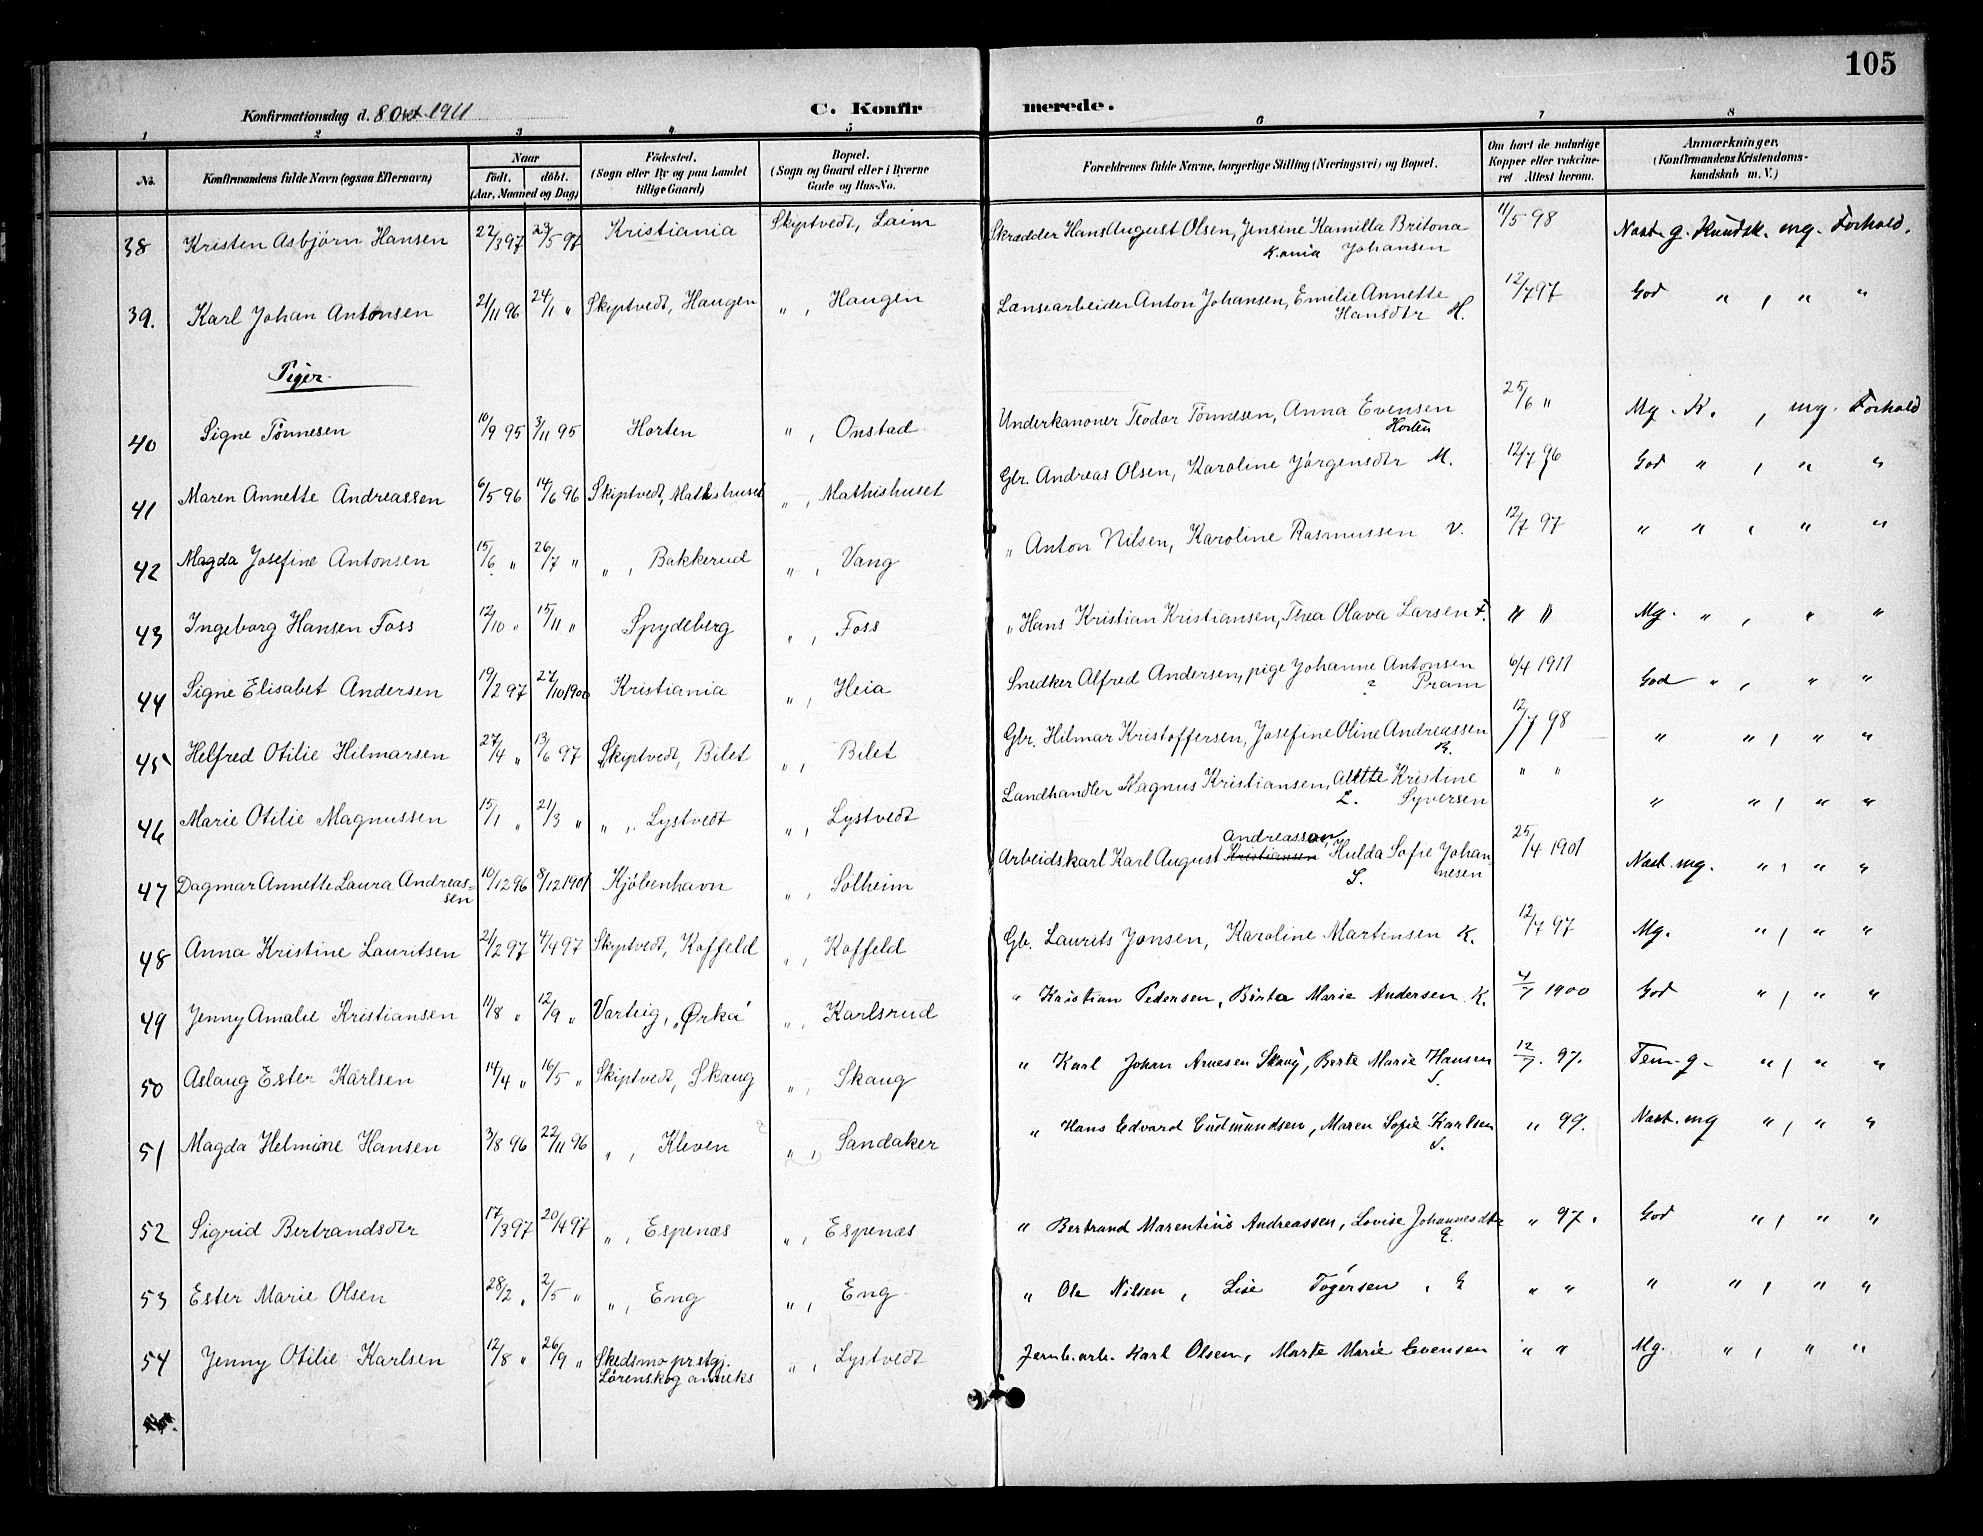 105
Konfirmationsdag d. 8 Okt. 1911 C. Konfirmerede.
1 2 3 4 5 6 7 8
No. Konfirmandens fulde Navn (ogsaa Efternavn) Naar født. døbt. (Aar, Maaned og Dag) Fødested. (Sogn eller By og paa Landet tillige Gaard) Bopæl. (Sogn og Gaard eller i Byerne Gade og Hus-No. Forældrenes fulde Navne, borgerlige Stilling (Næringsvei) og Bopæl. Om havt de naturlige Kopper eller vaccineret Attest herom. Anmærkninger, (Konfirmandens Kristendomskundskab m. V.)
38 Kristen Asbjørn Hansen 22/3 97 23/5 97 Kristiania Skiptvedt, Laim Skrædder Hans August Olsen, Jensine Kamilla Britona 11/5 98 Nast. g. Kundsk. mg. Forhold.
K.ania Johansen
39. Karl Johan Antonsen 21/11 96 24/1 " Skiptvedt, Haugen " , Haugen Lænsearbeider Anton Johansen, Emelie Annette 12/7 97 God " , " "
Hansdtr H.
Piger.
40 Signe Tönnesen 10/9 95 3/11 95 Horten " , Onstad Underkanoner Teodor Tönnesen, Anna Evensen 25/6 " Mg. K. , mg. Forhold
Horten
41 Maren Annette Andreassen 6/5 96 14/6 96 Skiptvedt, Mathishuset " , Mathishuset Gbr. Andreas Olsen, Karoline Jörgensdtr M. 12/7 96 God " , " "
42 Magda Josefine Antonsen 15/6 " 26/7 " " , Bakkerud " , Vang " Anton Nilsen, Karoline Rasmussen V. 12/7 97 " " , " "
43 Ingeborg Hansen Foss 12/10 " 15/11 " Spydeberg " , Foss " Hans Kristian Kristiansen, Thea Olava Larsen F. " " Mg. " , " "
44 Signe Elisabet Andersen 19/2 97 27/10 1900 Kristiania " , Heia Snedker Alfred Andersen, pige Johanne Antonsen 6/4 1911 God " , " "
? Pram
45 Helfred Otilie Hilmarsen 27/4 " 13/6 97 Skiptvedt, Bilet " , Bilet Gbr. Hilmar Kristoffersen, Josefine Oline Andreassen 12/7 98 " " , " "
B.
46 Marie Otilie Magnussen 15/1 " 21/3 " " , Lystvedt " , Lystvedt Landhandler Magnus Kristiansen, Alette Kristine " " " " , " "
L. Syversen
47 Dagmar Annette Laura Andreas- 10/12 96 8/12 1901 Kjöbenhavn " , Solheim Arbeidskarl Karl August Kristiansen Andreassen, Hulda Sofie Johan- 25/4 1901 Nast. mg. " , " "
sen S. nesen
48 Anna Kristine Lauritsen 21/2 97 4/4 97 Skiptvedt, Koffeld " , Koffeld Gb. Laurits Jonsen, Karoline Martinsen K. 12/7 97 Mg. " , " "
49 Jenny Amalie Kristiansen 11/8 " 12/9 " Varteig, "Ørka" " , Karlsrud " Kristian Pedersen, Birte Marie Andersen K. 4/7 1900 God " , " "
50 Aslaug Ester Karlsen 14/4 " 16/5 " Skiptvedt, Skaug " , Skaug " Karl Johan Arnesen Skaug, Berte Marie Hansen 12/7. 97. Tem. g. " , " "
S.
51 Magda Helmine Hansen 3/8 96 22/11 96 " , Kleven " , Sandaker " Hans Edvard Gudmundsen, Maren Sofie Karlsen " 99. Nast. mg " , " "
S.
52 Sigrid Bertrandsdtr 17/3 97 20/4 97 " , Espenæs " , Espenæs " Bertrand Marentius Andreassen, Lovise Johannesdtr " 97. God " , " "
E.
53 Ester Marie Olsen 28/2 " 2/5 " " , Eng " , Eng " Ole Nilsen, Lise Togersen , E " " " " , " "
54 Jenny Otilie Karlsen 12/8 " 26/9 " Skedsmo prstgj. " , Lystvedt Jernb. arb. Karl Olsen, Marte Marie Evensen " " Mg. " , " "
Lørenskog anneks